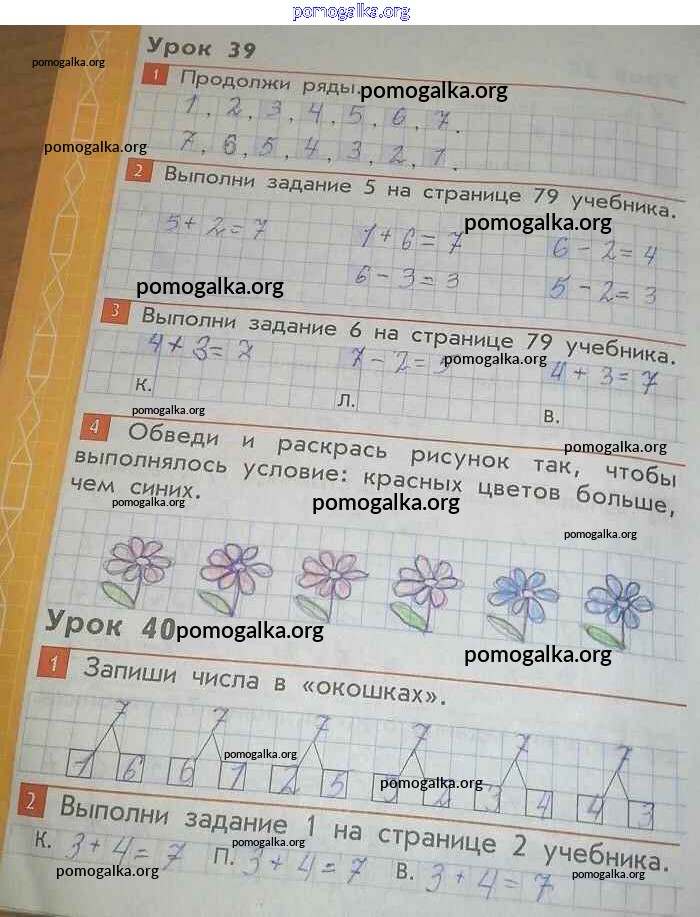 pomogalka.org
Урок 39
pomogalka.org
1 Продолжи ряды. pomogalka.org
1, 2, 3, 4, 5, 6, 7.
pomogalka.org
7, 6, 5, 4, 3, 2, 1.
2 Выполни задание 5 на странице 79 учебника.
pomogalka.org
5+2=7 1+6=7 6-2=4
pomogalka.org
6-3=3 5-2=3
3 Выполни задание 6 на странице 79 учебника.
4+3=7 7-2= 4+3=7
pomogalka.org
К. Л. В.
pomogalka.org
4 Обведи и раскрась рисунок так, чтобы
pomogalka.org
выполнялось условие: красных цветов больше,
чем синих.
pomogalka.org pomogalka.org
pomogalka.org
Урок 40 pomogalka.org
pomogalka.org
1 Запиши числа в «окошках».
7 7 7 7 7 7
pomogalka.org
1 6 6 1 2 5 3 4 4 3
pomogalka.org
2 Выполни задание 1 на странице 2 учебника.
К. 3+4=7 П. 3+4=7 В. 3+4=7
pomogalka.org
pomogalka.org pomogalka.org